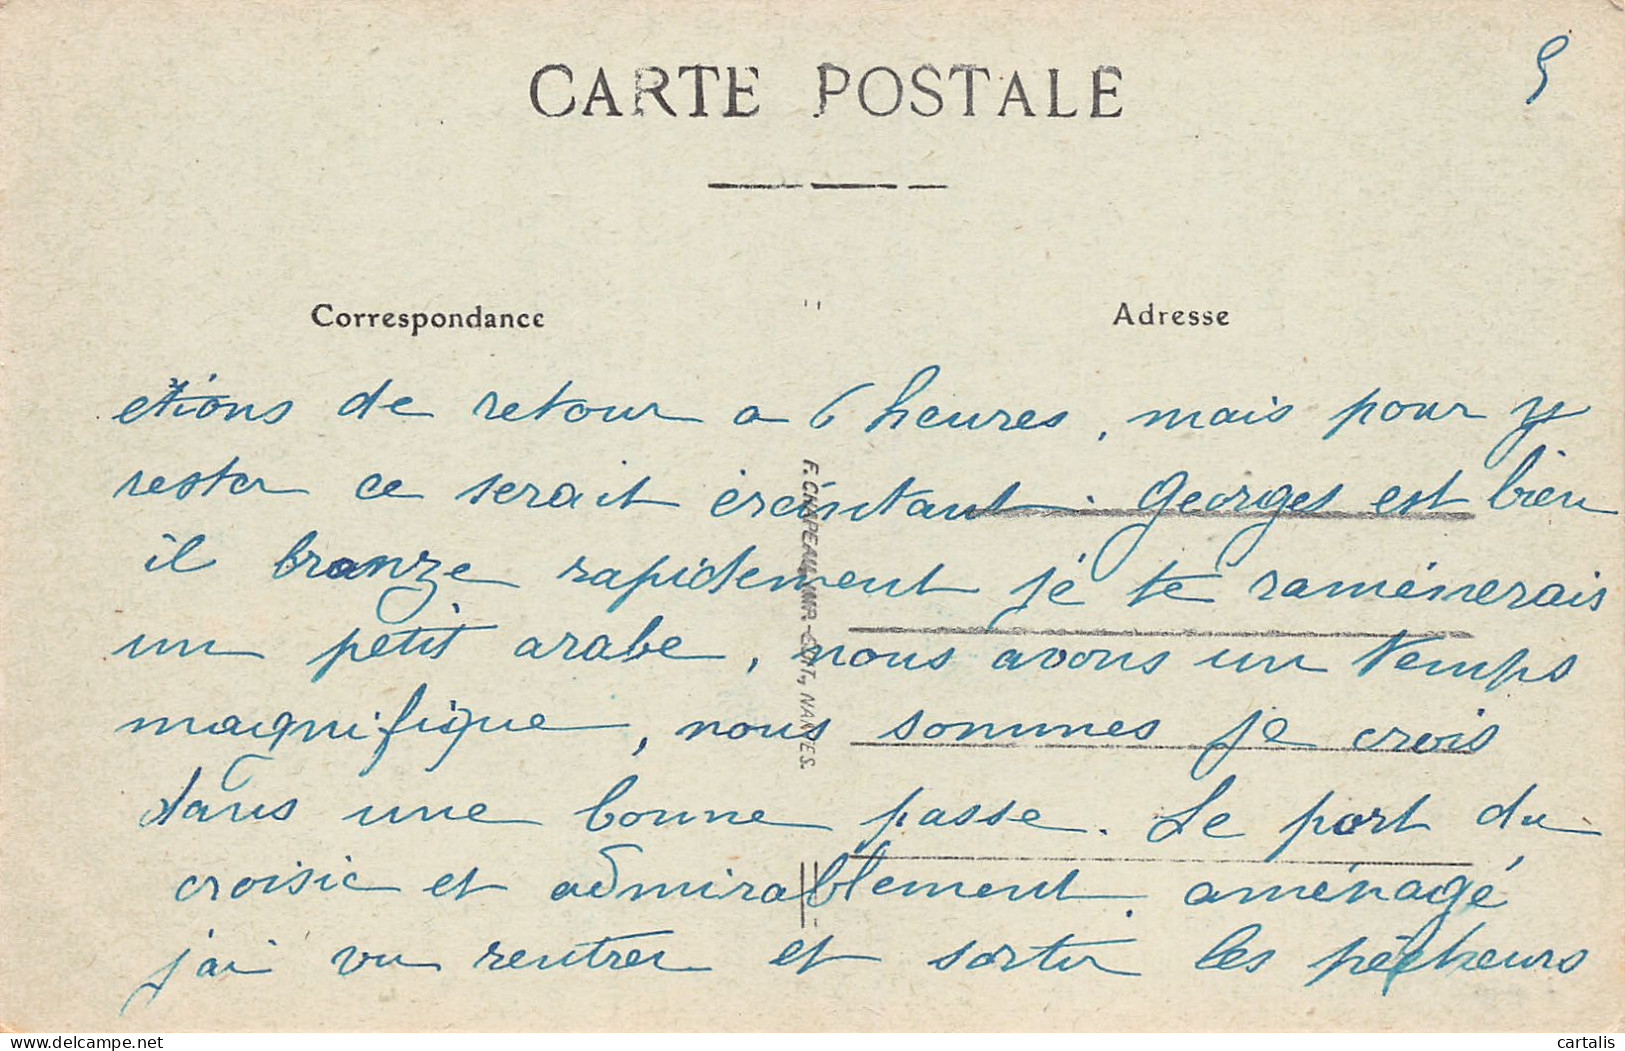 CARTE POSTALE
5
Correspondance
Adresse
etions de retour a 6 heures, mais pour y
rester ce serait éreintant. Georges est bien
il bronze rapidement je te ramènerais
un petit arabe, nous avons un temps
magnifique, nous sommes je crois
dans une bonne passe. Le port du
croisic et admirablement aménagé
j'ai vu rentrer et sortir les pêcheurs
F. CHAPEAU, IMP.-ÉDIT., NANTES.
delcampe.net
cartalis